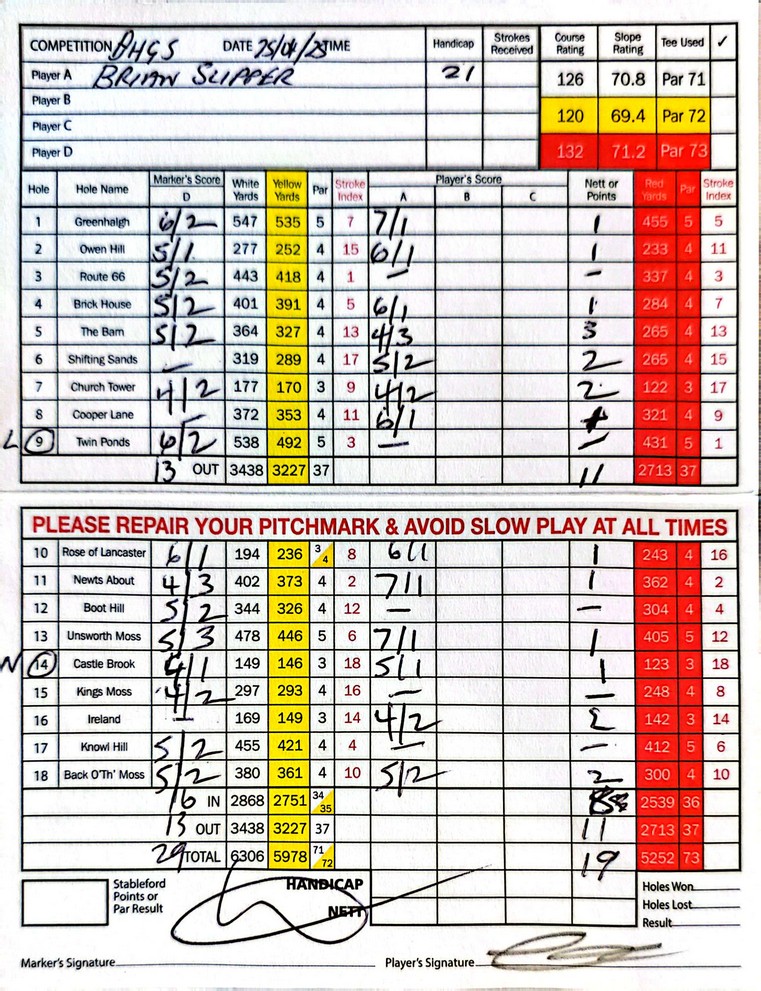 COMPETITION BHGS DATE 25/04/25 TIME Handicap Strokes Received Course Rating Slope Rating Tee Used ✓
Player A BRIAN SLIPPER 21 126 70.8 Par 71
Player B
Player C 120 69.4 Par 72
Player D 132 71.2 Par 73
Hole Hole Name Marker's Score D White Yards Yellow Yards Par Stroke Index Player's Score A B C Nett or Points Red Yards Par Stroke Index
1 Greenhalgh 6/2 547 535 5 7 7/1 1 455 5 5
2 Owen Hill 5/1 277 252 4 15 6/1 1 233 4 11
3 Route 66 5/2 443 418 4 1 — - 337 4 3
4 Brick House 5/2 401 391 4 5 6/1 1 284 4 7
5 The Barn 5/2 364 327 4 13 4/3 3 265 4 13
6 Shifting Sands — 319 289 4 17 5/2 2 265 4 15
7 Church Tower 4/2 177 170 3 9 4/2 2 122 3 17
8 Cooper Lane — 372 353 4 11 6/1 1 321 4 9
L 9 Twin Ponds 6/2 538 492 5 3 — — 431 5 1
13 OUT 3438 3227 37 11 2713 37
PLEASE REPAIR YOUR PITCHMARK & AVOID SLOW PLAY AT ALL TIMES
10 Rose of Lancaster 6/1 194 236 3 4 8 6/1 1 243 4 16
11 Newts About 4/3 402 373 4 2 7/1 1 362 4 2
12 Boot Hill 5/2 344 326 4 12 — — 304 4 4
13 Unsworth Moss 5/3 478 446 5 6 7/1 1 405 5 12
N 14 Castle Brook 4/1 149 146 3 18 5/1 1 123 3 18
15 Kings Moss 4/2 297 293 4 16 — — 248 4 8
16 Ireland — 169 149 3 14 4/2 2 142 3 14
17 Knowl Hill 5/2 455 421 4 4 — — 412 5 6
18 Back O'Th' Moss 5/2 380 361 4 10 5/2 2 300 4 10
16 IN 2868 2751 34 35 8 2539 36
13 OUT 3438 3227 37 11 2713 37
29 TOTAL 6306 5978 71 72 19 5252 73
Stableford Points or Par Result HANDICAP NETT
Holes Won
Holes Lost
Result
Marker's Signature Player's Signature